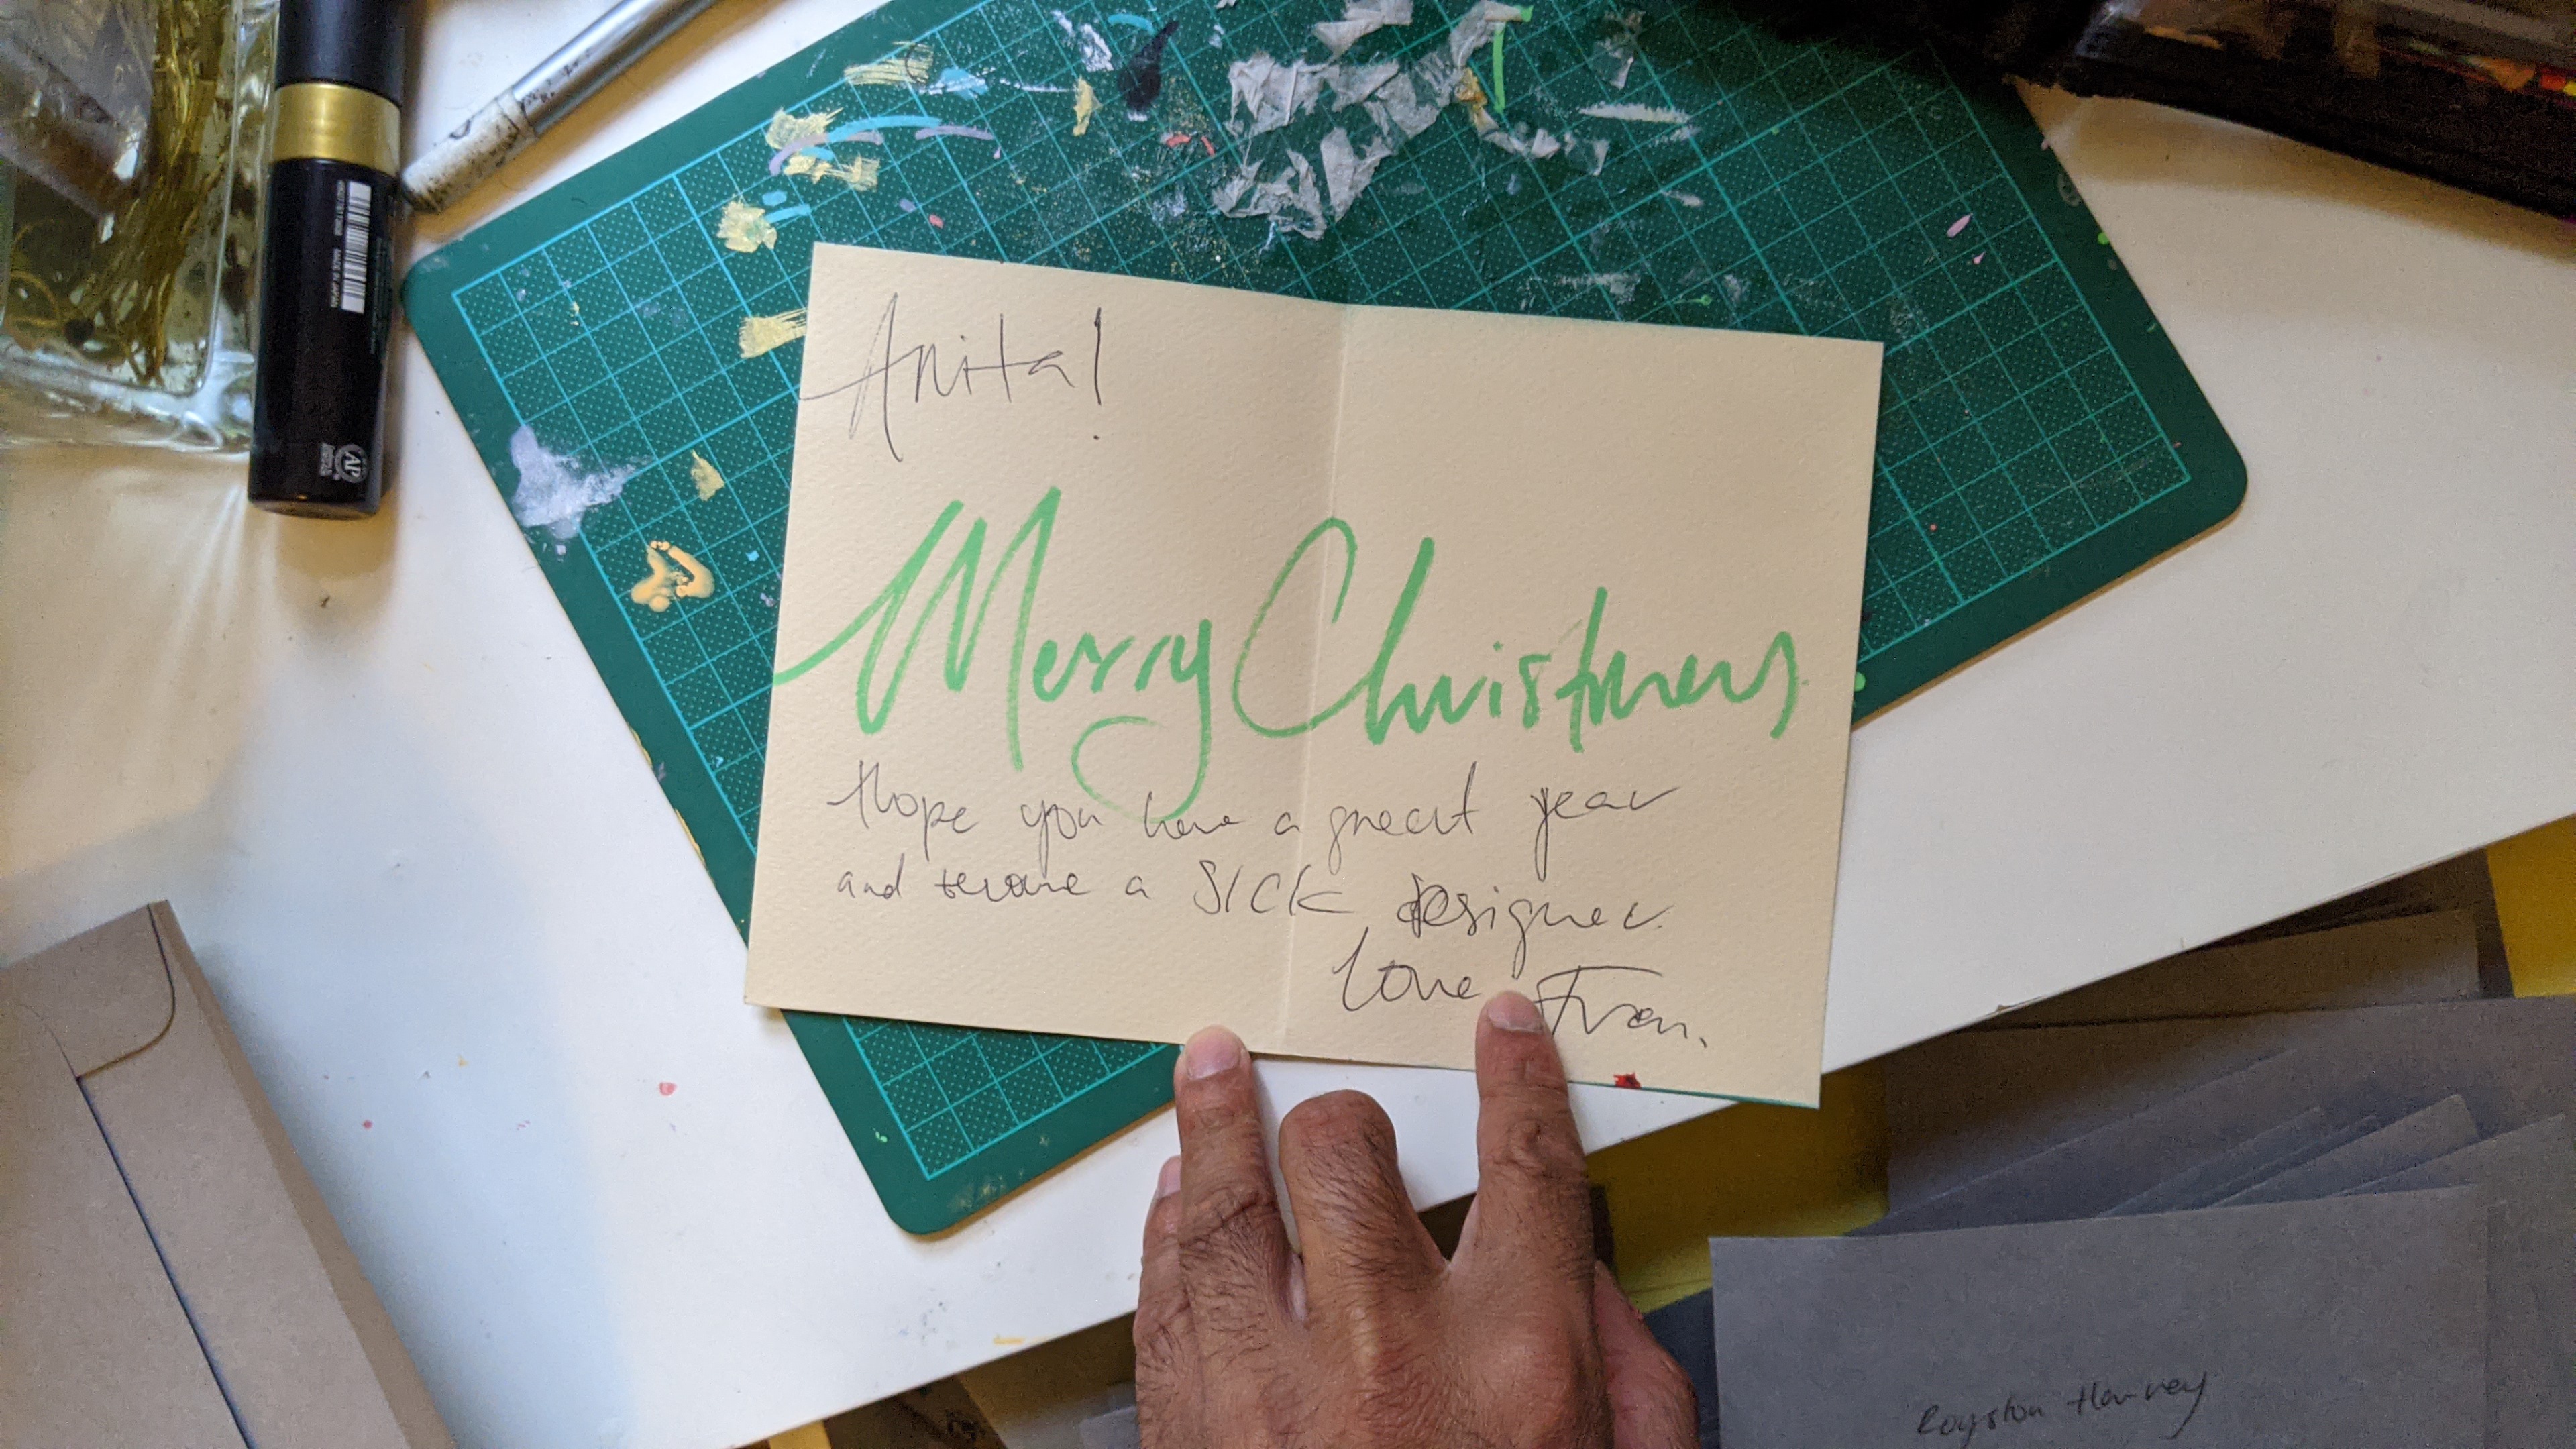 Anita!
Merry Christmas
Hope you have a great year
and become a SICK designer.
Love Fran.
Royston Harvey
MADE IN JAPAN
AP